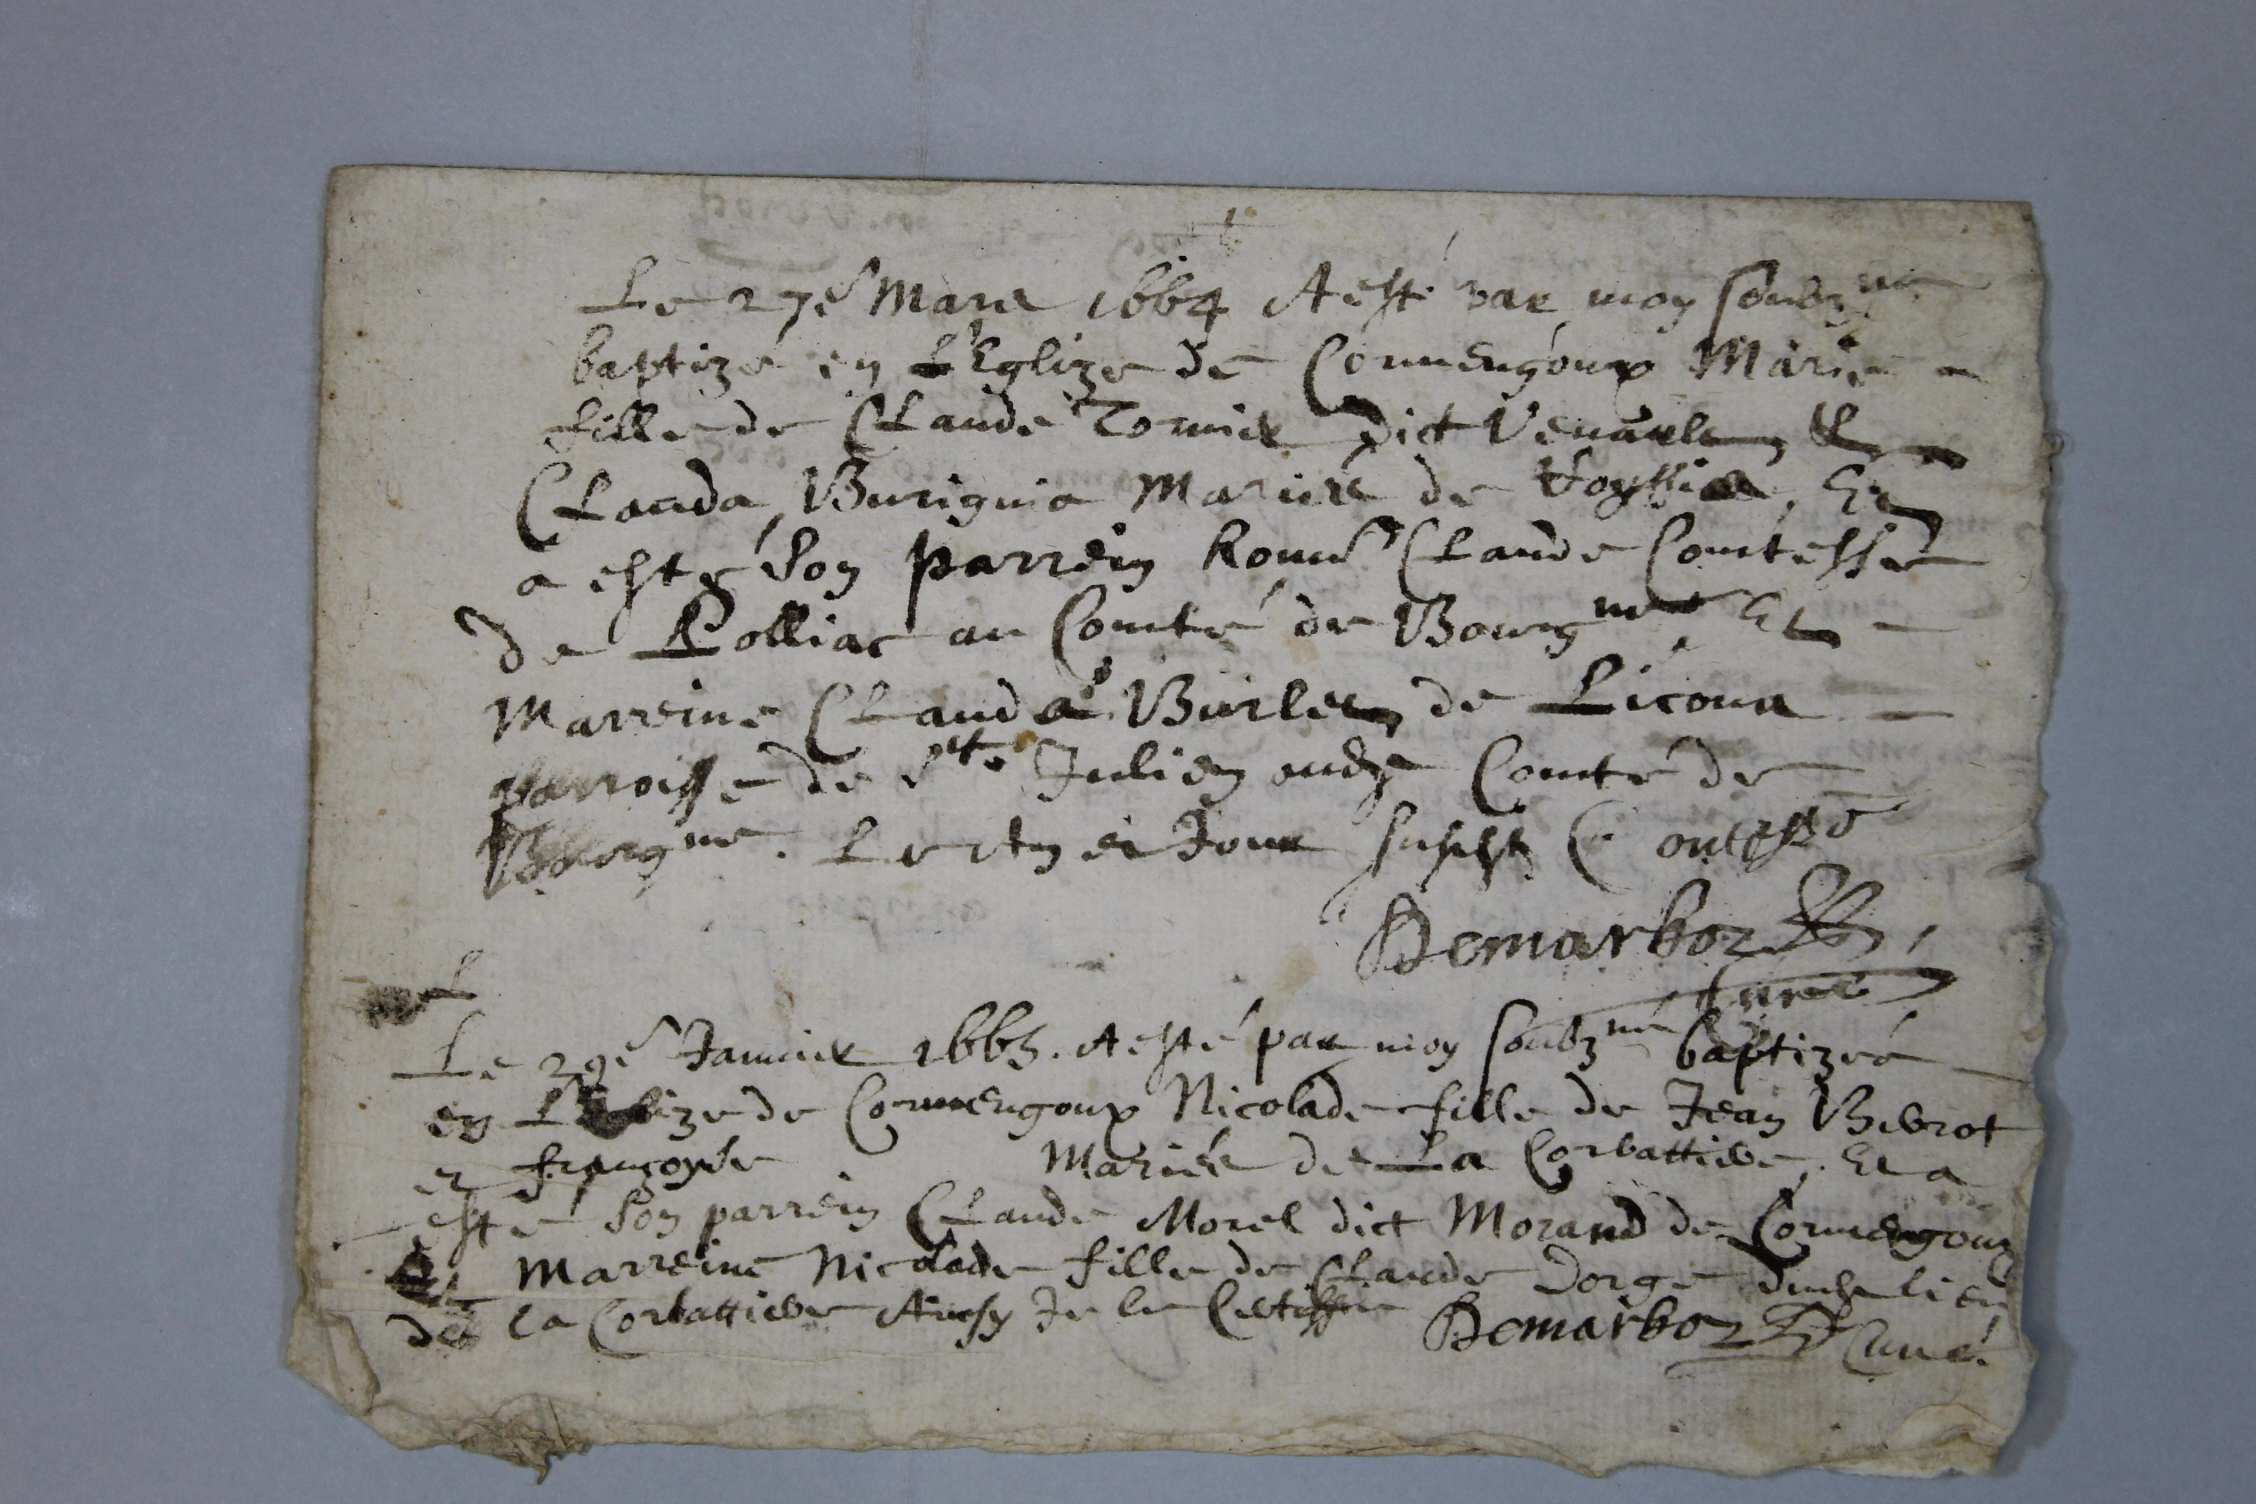 Le 27e Mars 1664 A esté par moy soubzné
baptizé en L'Eglize de Cormengoux Marie
fille de Claude Tornier dict Venarle &
Clauda Buriguia Mariés de Et
a esté son parrein Claude Comtesse
de Rolliac au Comté de Bourgne Et
Marreine Clauda Burlen de Licona
parroisse de Ste Julien Comté de
Bourgne. jour Contesse
Demarboz
Curé
L
Le 29e Januier 1665. A esté par moy soubzné baptizée
en L'Eglize de Cormengoux Nicolade fille de Jean Bebrot
et françoyse Mariés de La Corbattiere, Et a
esté son parrein Claude Morel dict Morand de Cormengoux
Et Marreine Nicolade fille de Claude Dorge dudt lieu
de la Corbattiere Ainsy Je le Certiffie Demarboz Curé.